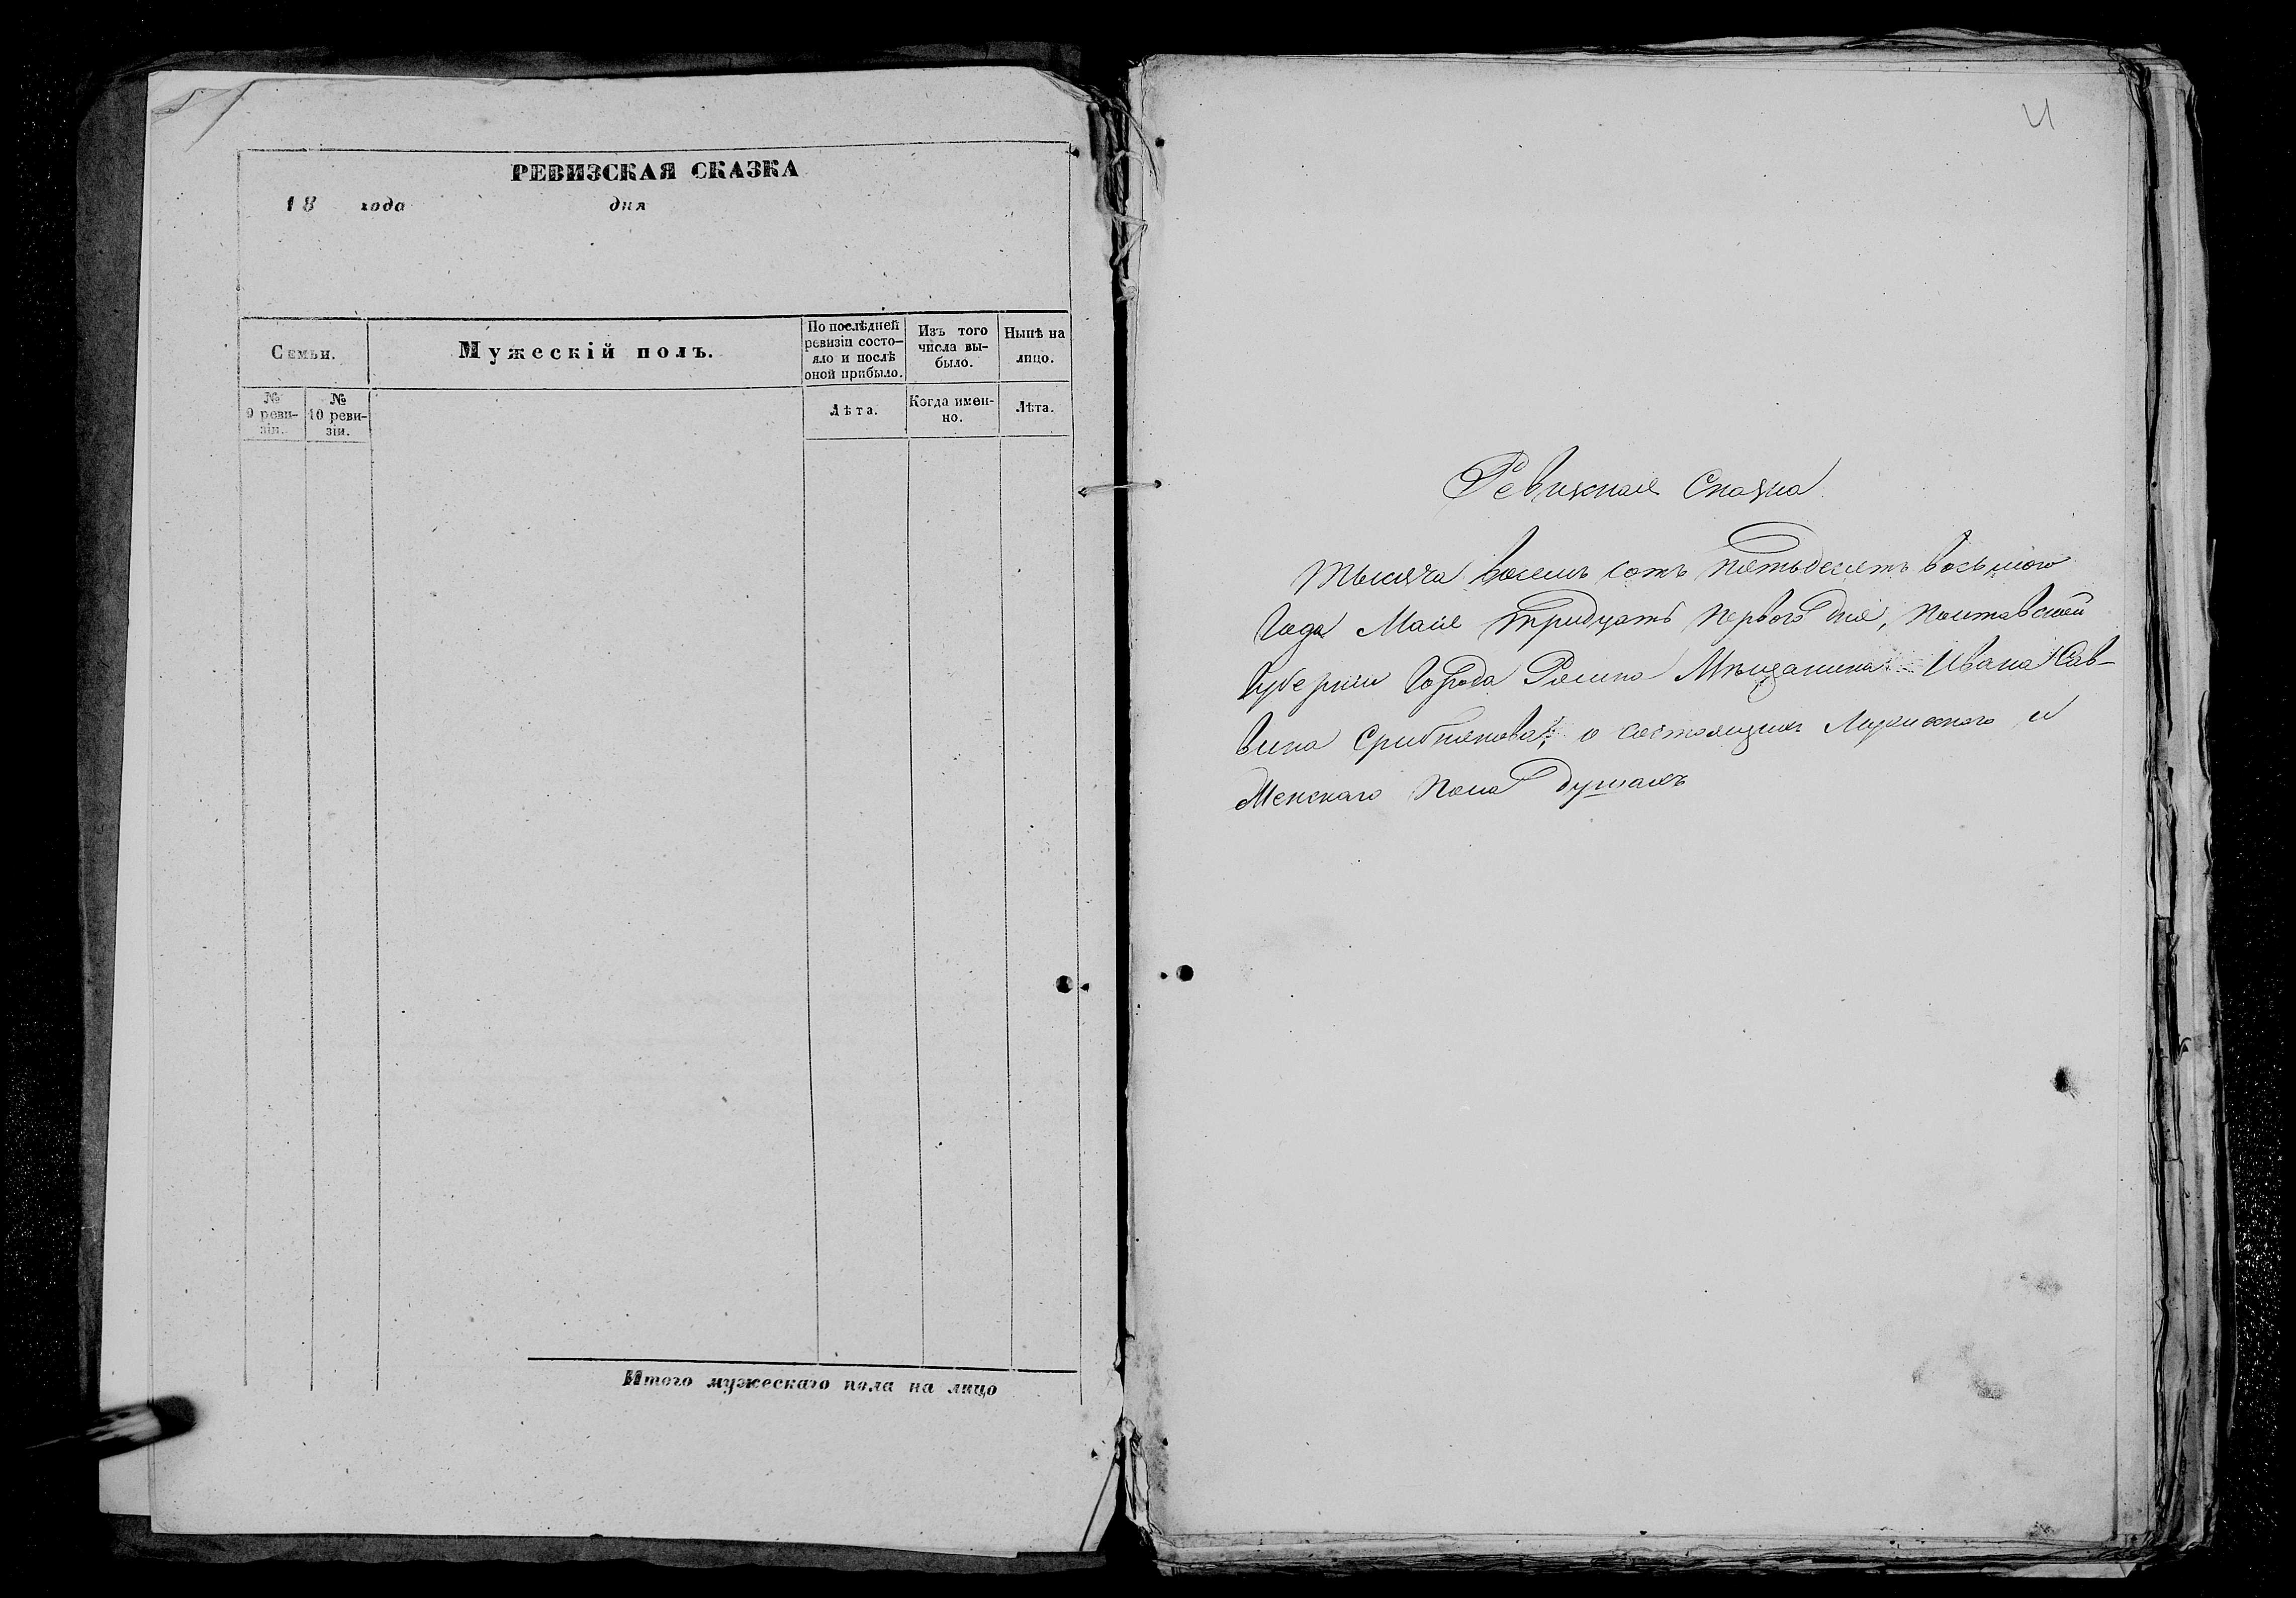 РЕВИЗСКАЯ СКАЗКА
18 года дня
Семьи.
Мужескій полъ.
По послѣдней ревизіи состо-
яло и послѣ
оной прибыло.
Изъ того
числа вы-
было.
Нынѣ на
лицо.
№
9 реви-
зіи.
№
10 реви-
зіи.
Лѣта.
Когда имен-
но.
Лѣта.
Итого мужескаго пола на лицо
Ревизкая Сказка
Тысяча восемь сотъ пятьдесятъ восьмого
Года Мая тридцать первого дня, Полтавской
Губернии Города Ромна Мѣщанина Ивана Сав-
вина Срибнякова, о состоящихъ Мужеского и
Женскаго Пола душахъ